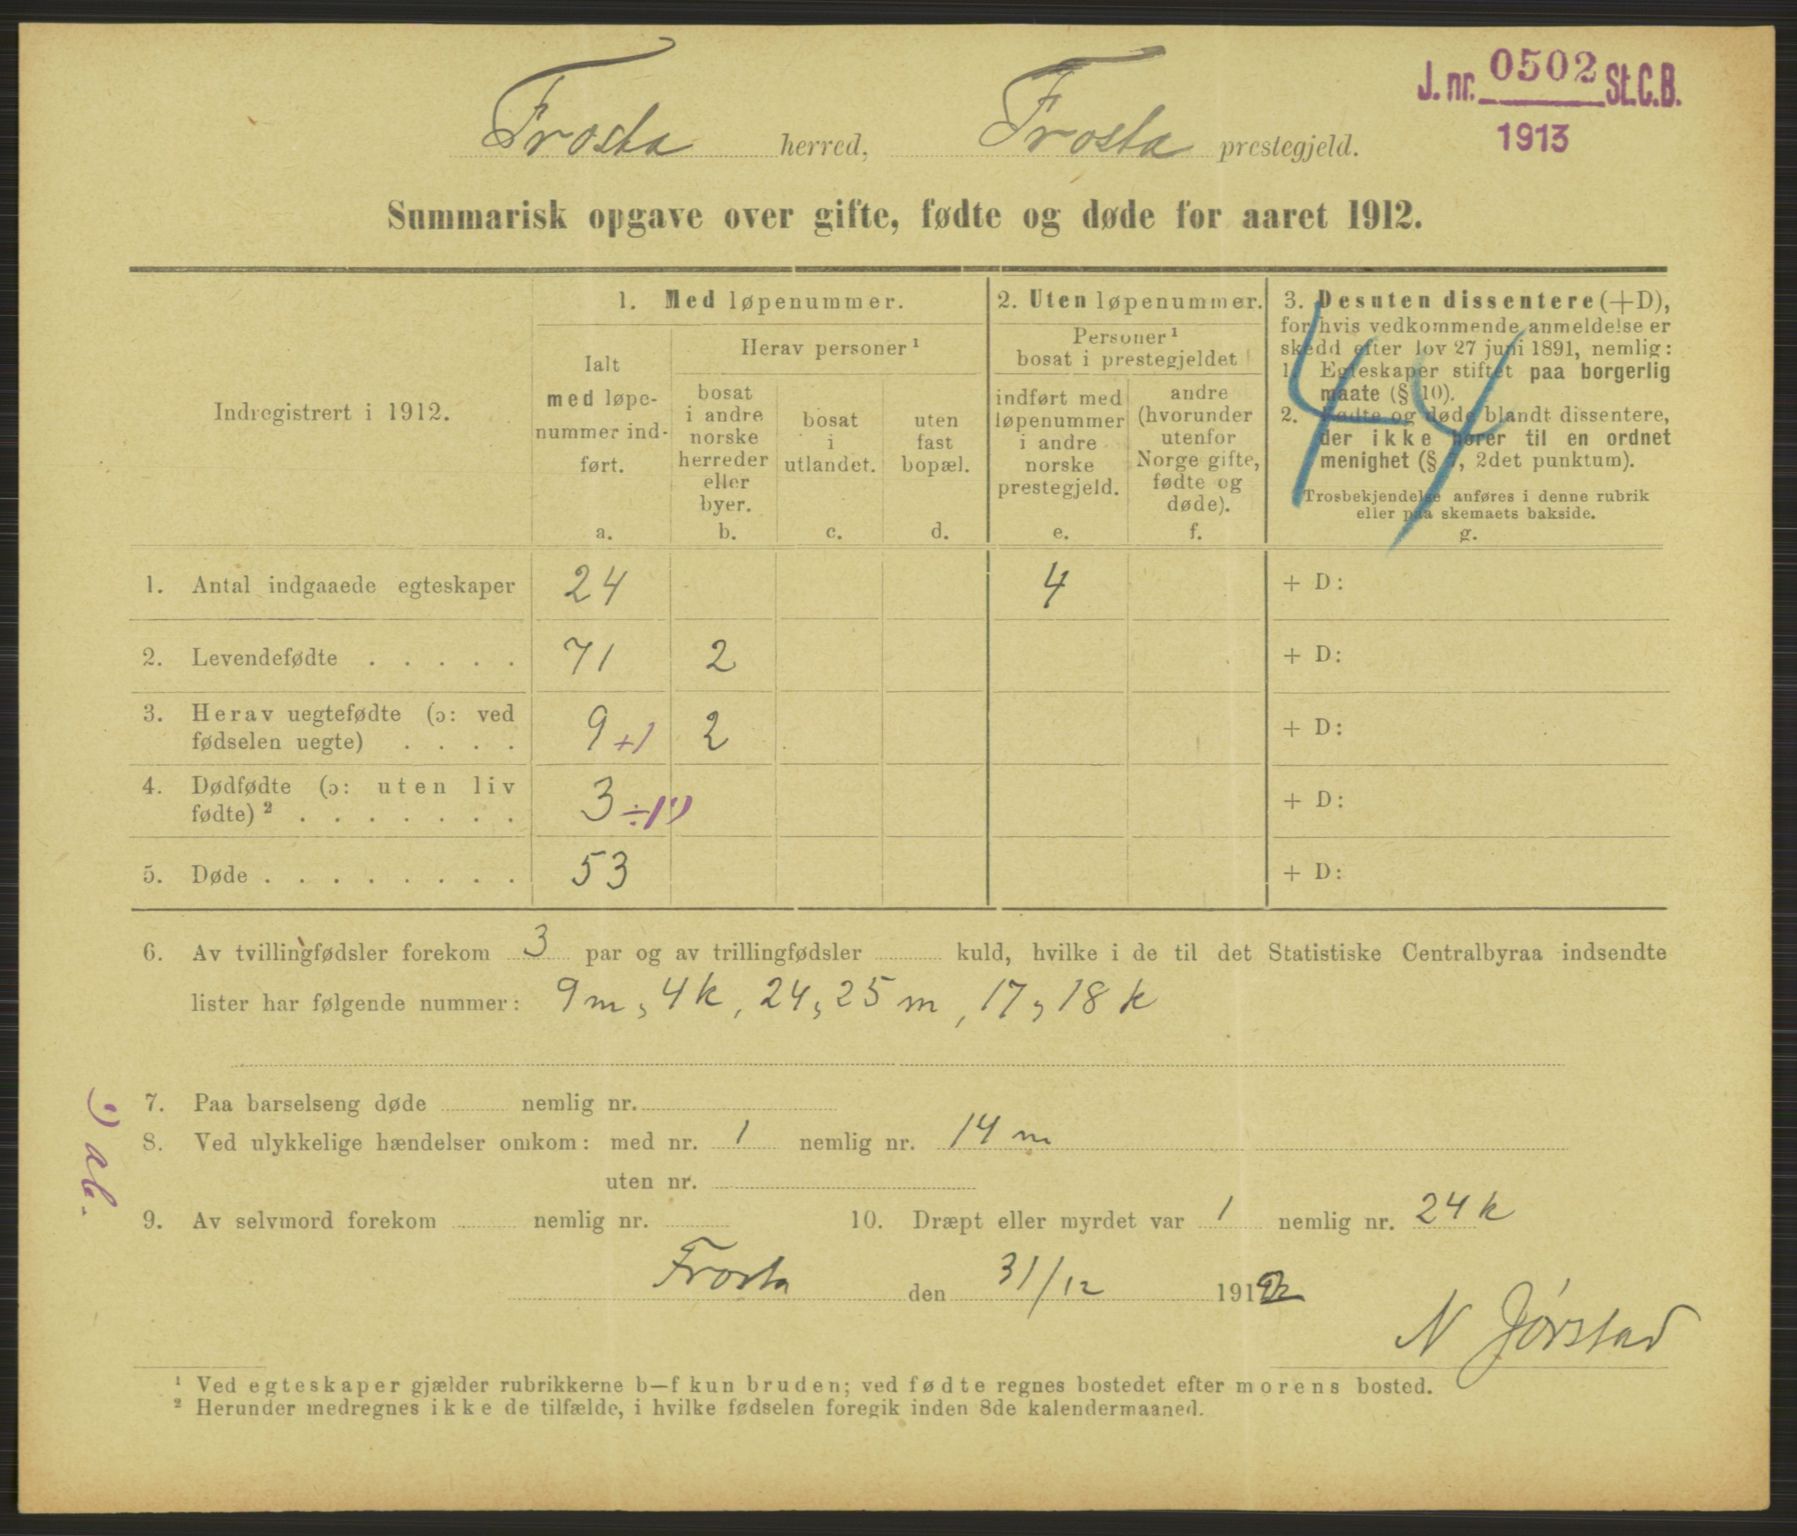 J. nr. 0502 St.C.B.
1913
Frosta herred, Frosta prestegjeld.
Summarisk opgave over gifte, fødte og døde for aaret 1912.
Indregistrert i 1912.
1. Med løpenummer.
Ialt
med løpe-
nummer ind-
ført.
a.
Herav personer ¹
bosat
i andre
norske
herreder
eller
byer.
b.
bosat
i
utlandet.
c.
uten
fast
bopæl.
d.
2. Uten løpenummer.
Personer ¹
bosat i prestegjeldet
indført med
løpenummer
i andre
norske
prestegjeld.
e.
andre
(hvorunder
utenfor
Norge gifte,
fødte og
døde).
f.
3. Desuten dissentere (+D),
for hvis vedkommende anmeldelse er
skedd efter lov 27 juni 1891, nemlig:
1. Egteskaper stiftet paa borgerlig
maate (§ 10).
2. Fødte og døde blandt dissentere,
der ikke hører til en ordnet
menighet (§ , 2det punktum).
Trosbekjendelse anføres i denne rubrik
eller paa skemaets bakside.
g.
44
1. Antal indgaaede egteskaper 24 4 + D:
2. Levendefødte . . . . . 71 2 + D:
3. Herav uegtefødte (ɔ: ved
fødselen uegte) . . . . 9 +1 2 + D:
4. Dødfødte (ɔ: uten liv
fødte) ² . . . . . . . 3 ÷1¹) + D:
5. Døde . . . . . . . . 53 + D:
6. Av tvillingfødsler forekom 3 par og av trillingfødsler kuld, hvilke i de til det Statistiske Centralbyraa indsendte
lister har følgende nummer: 9 m, 4 k, 24, 25 m, 17, 18 k
7. Paa barselseng døde nemlig nr.
8. Ved ulykkelige hændelser omkom: med nr. 1 nemlig nr. 14 m
uten nr.
¹) ab.
9. Av selvmord forekom nemlig nr. 10. Dræpt eller myrdet var 1 nemlig nr. 24 k
Frosta den 31/12 1912
N Jørstad
¹ Ved egteskaper gjælder rubrikkerne b—f kun bruden; ved fødte regnes bostedet efter morens bosted.
² Herunder medregnes ikke de tilfælde, i hvilke fødselen foregik inden 8de kalendermaaned.